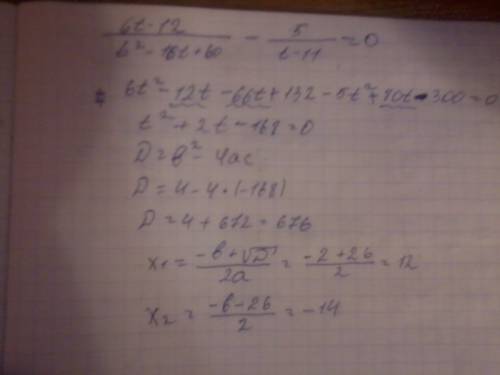 (6t-12)/(t²-16t+60) - 5/(t-11) = 0
6t²-12t-66t+132-5t²+80t-300=0
t²+2t-168=0
D=b²-4ac
D=4-4·(-168)
D=4+672=676
x₁=(-b+√D)/2a=(-2+26)/2=12
x₂=(-b-26)/2=-14